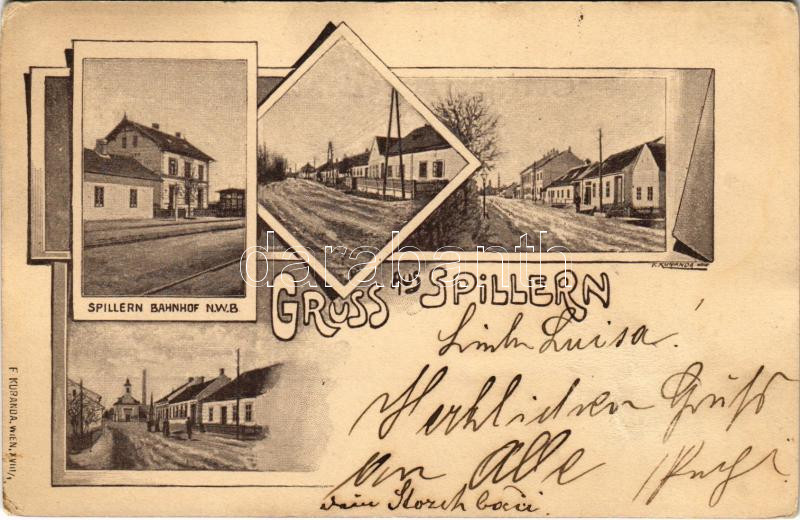 SPILLERN BAHNHOF N.W.B
F. KURANDA
GRUSS AUS SPILLERN
F. KURANDA, WIEN, XVIII/1
Liebe Luisa!
Herzlichen Gruß
an Alle
dein Storch bácsi.
darabanth